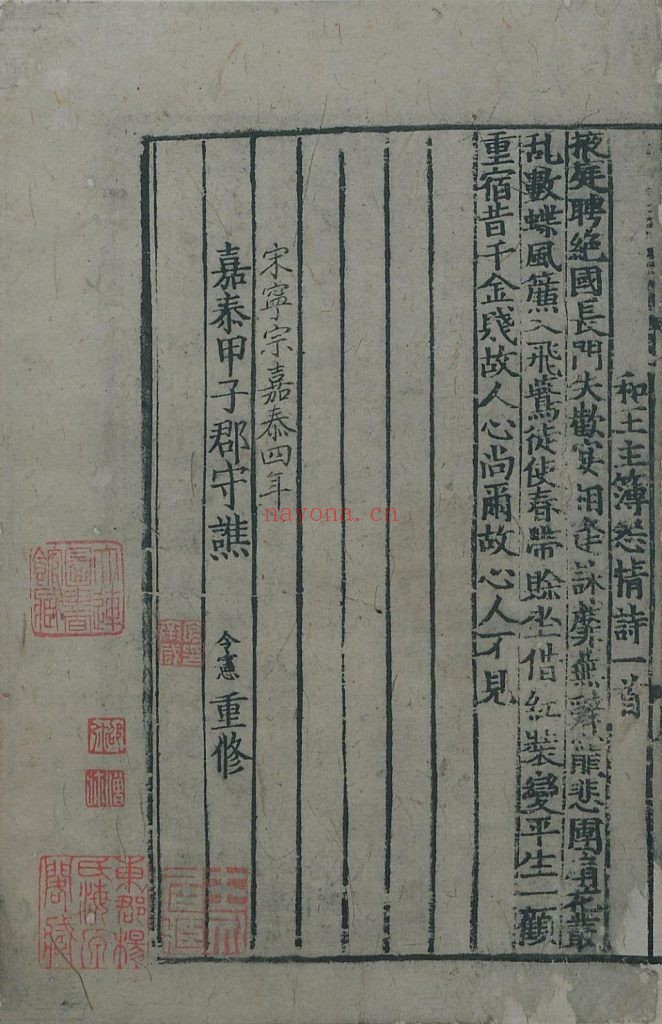 和王主簿怨情詩一首
掖庭聘絶國長門失歡宴相逢詠蘼蕪辭寵悲團扇花叢
乱數蝶風簾入飛鷰徒使春帶賒坐惜紅裝變平生一顧
重宿昔千金賤故人心尚爾故心人不見
宋寧宗嘉泰四年
嘉泰甲子郡守譙 令憲 重修
東郡楊氏海源閣藏
nayona.cn